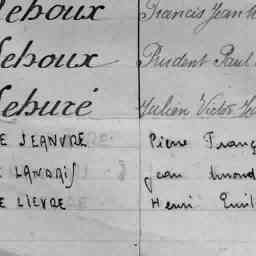 Leboux Francis Jean
Leboux Prudent Paul
Leburé Julien Victor
LE JEANVRE Pierre Franç
LE LANDAIS Jean
LE LIEVRE Henri Emil